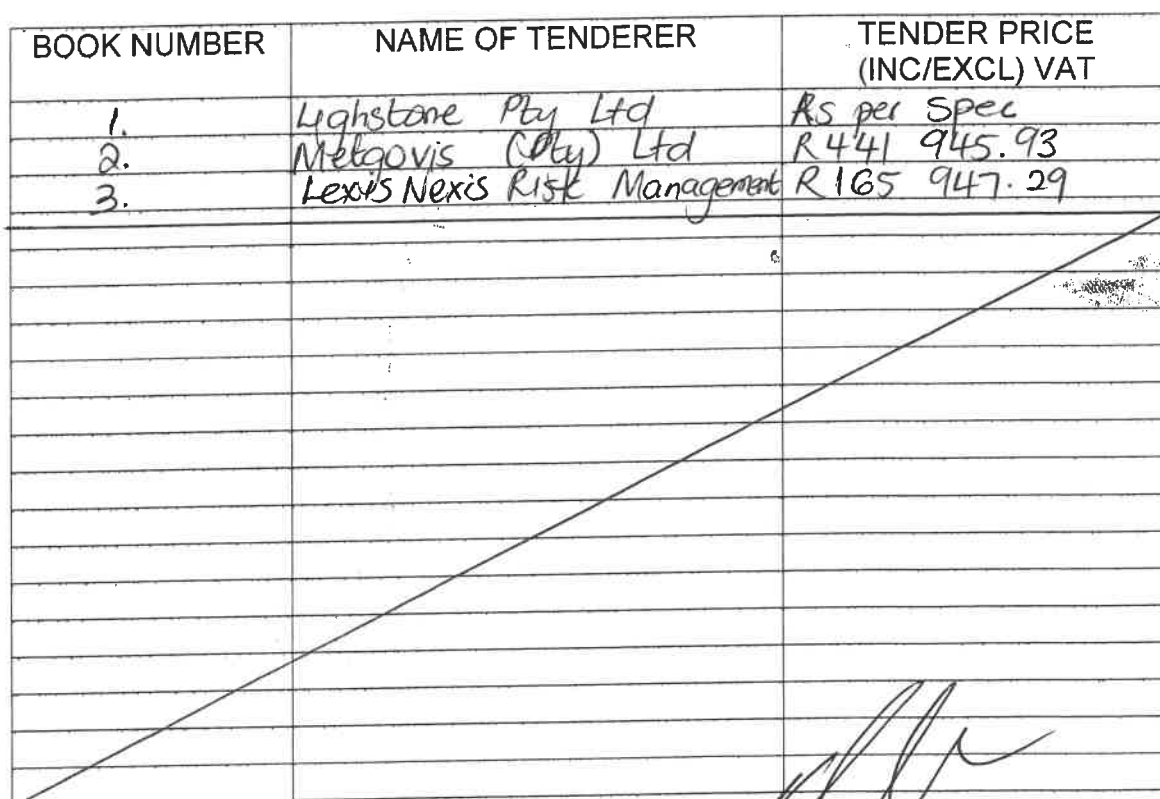 BOOK NUMBER NAME OF TENDERER TENDER PRICE
(INC/EXCL) VAT
1. Lighstone Pty Ltd As per Spec
2. Metgovis (Pty) Ltd R441 945.93
3. Lexis Nexis Risk Management R165 947.29